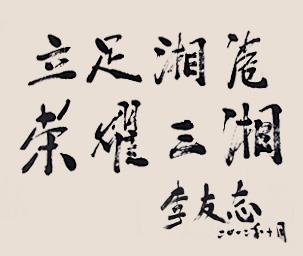 立足湘港
荣耀三湘
李友志
二〇一二年十月